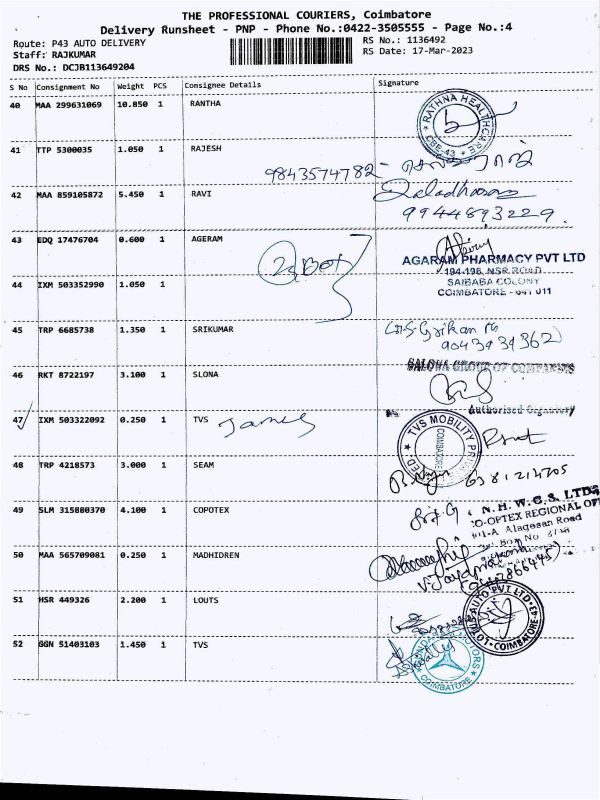 THE PROFESSIONAL COURIERS, Coimbatore
Delivery Runsheet - PNP - Phone No.:0422-3505555 - Page No.:4
Route: P43 AUTO DELIVERY
RS No.: 1136492
Staff: RAJKUMAR
RS Date: 17-Mar-2023
DRS No.: DCJB113649204
S No Consignment No Weight PCS Consignee Details Signature
40 MAA 299631069 10.850 1 RANTHA
RATHNA HEALTHCARE
CBE-43
41 TTP 5300035 1.050 1 RAJESH
9843574782-
42 MAA 859105872 5.450 1 RAVI
9944693229.
43 EDQ 17476704 0.600 1 AGERAM
AGARAM PHARMACY PVT LTD
194-196, NSR ROAD
SAIBABA COLONY
COIMBATORE - 641 011
44 IXM 503352990 1.050 1
2 Box
45 TRP 6685738 1.350 1 SRIKUMAR
46 RKT 8722197 3.100 1 SLONA
GROUP OF COMPANIES
Authorised Signatory
47 IXM 503322092 0.250 1 TVS James
TVS MOBILITY
COIMBATORE
48 TRP 4218573 3.000 1 SEAM
49 SLM 315880370 4.100 1 COPOTEX
N.H.W.C.S. LTD
CO-OPTEX REGIONAL OF
Alagesan Road
50 MAA 565709081 0.250 1 MADHIREN
51 HSR 449326 2.200 1 LOUTS
LOTUS AUTO PVT LTD
COIMBATORE-43
52 GGN 51403103 1.450 1 TVS
MOTORS
COIMBATORE